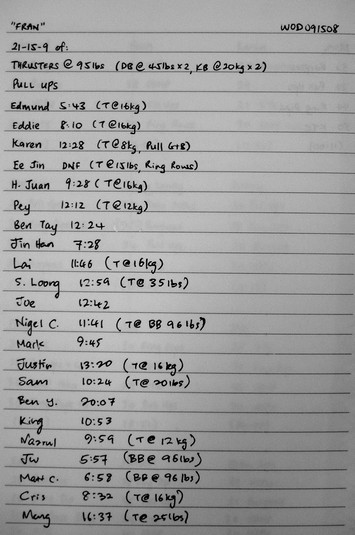 "FRAN" WOD 091508
21-15-9 of:
THRUSTERS @ 95lbs (DB @ 45lbs x2, KB @ 20kg x2)
PULL UPS
Edmund 5:43 (T@16kg)
Eddie 8:10 (T@16kg)
Karen 12:28 (T@8kg, Pull G+B)
Ee Jin DNF (T@15lbs, Ring Rows)
H. Juan 9:28 (T@16kg)
Pey 12:12 (T@12kg)
Ben Tay 12:24
Jin Han 7:28
Lai 11:46 (T@16kg)
S. Loong 12:59 (T@35lbs)
Joe 12:42
Nigel C. 11:41 (T@ BB 96lbs)
Mark 9:45
Justin 13:20 (T@ 16kg)
Sam 10:24 (T@ 20lbs)
Ben Y. 20:07
King 10:53
Nazrul 9:59 (T@ 12kg)
JW 5:57 (BB@ 96lbs)
Matt C. 6:58 (BB@ 96lbs)
Cris 8:32 (T@ 16kg)
Mung 16:37 (T@ 25lbs)